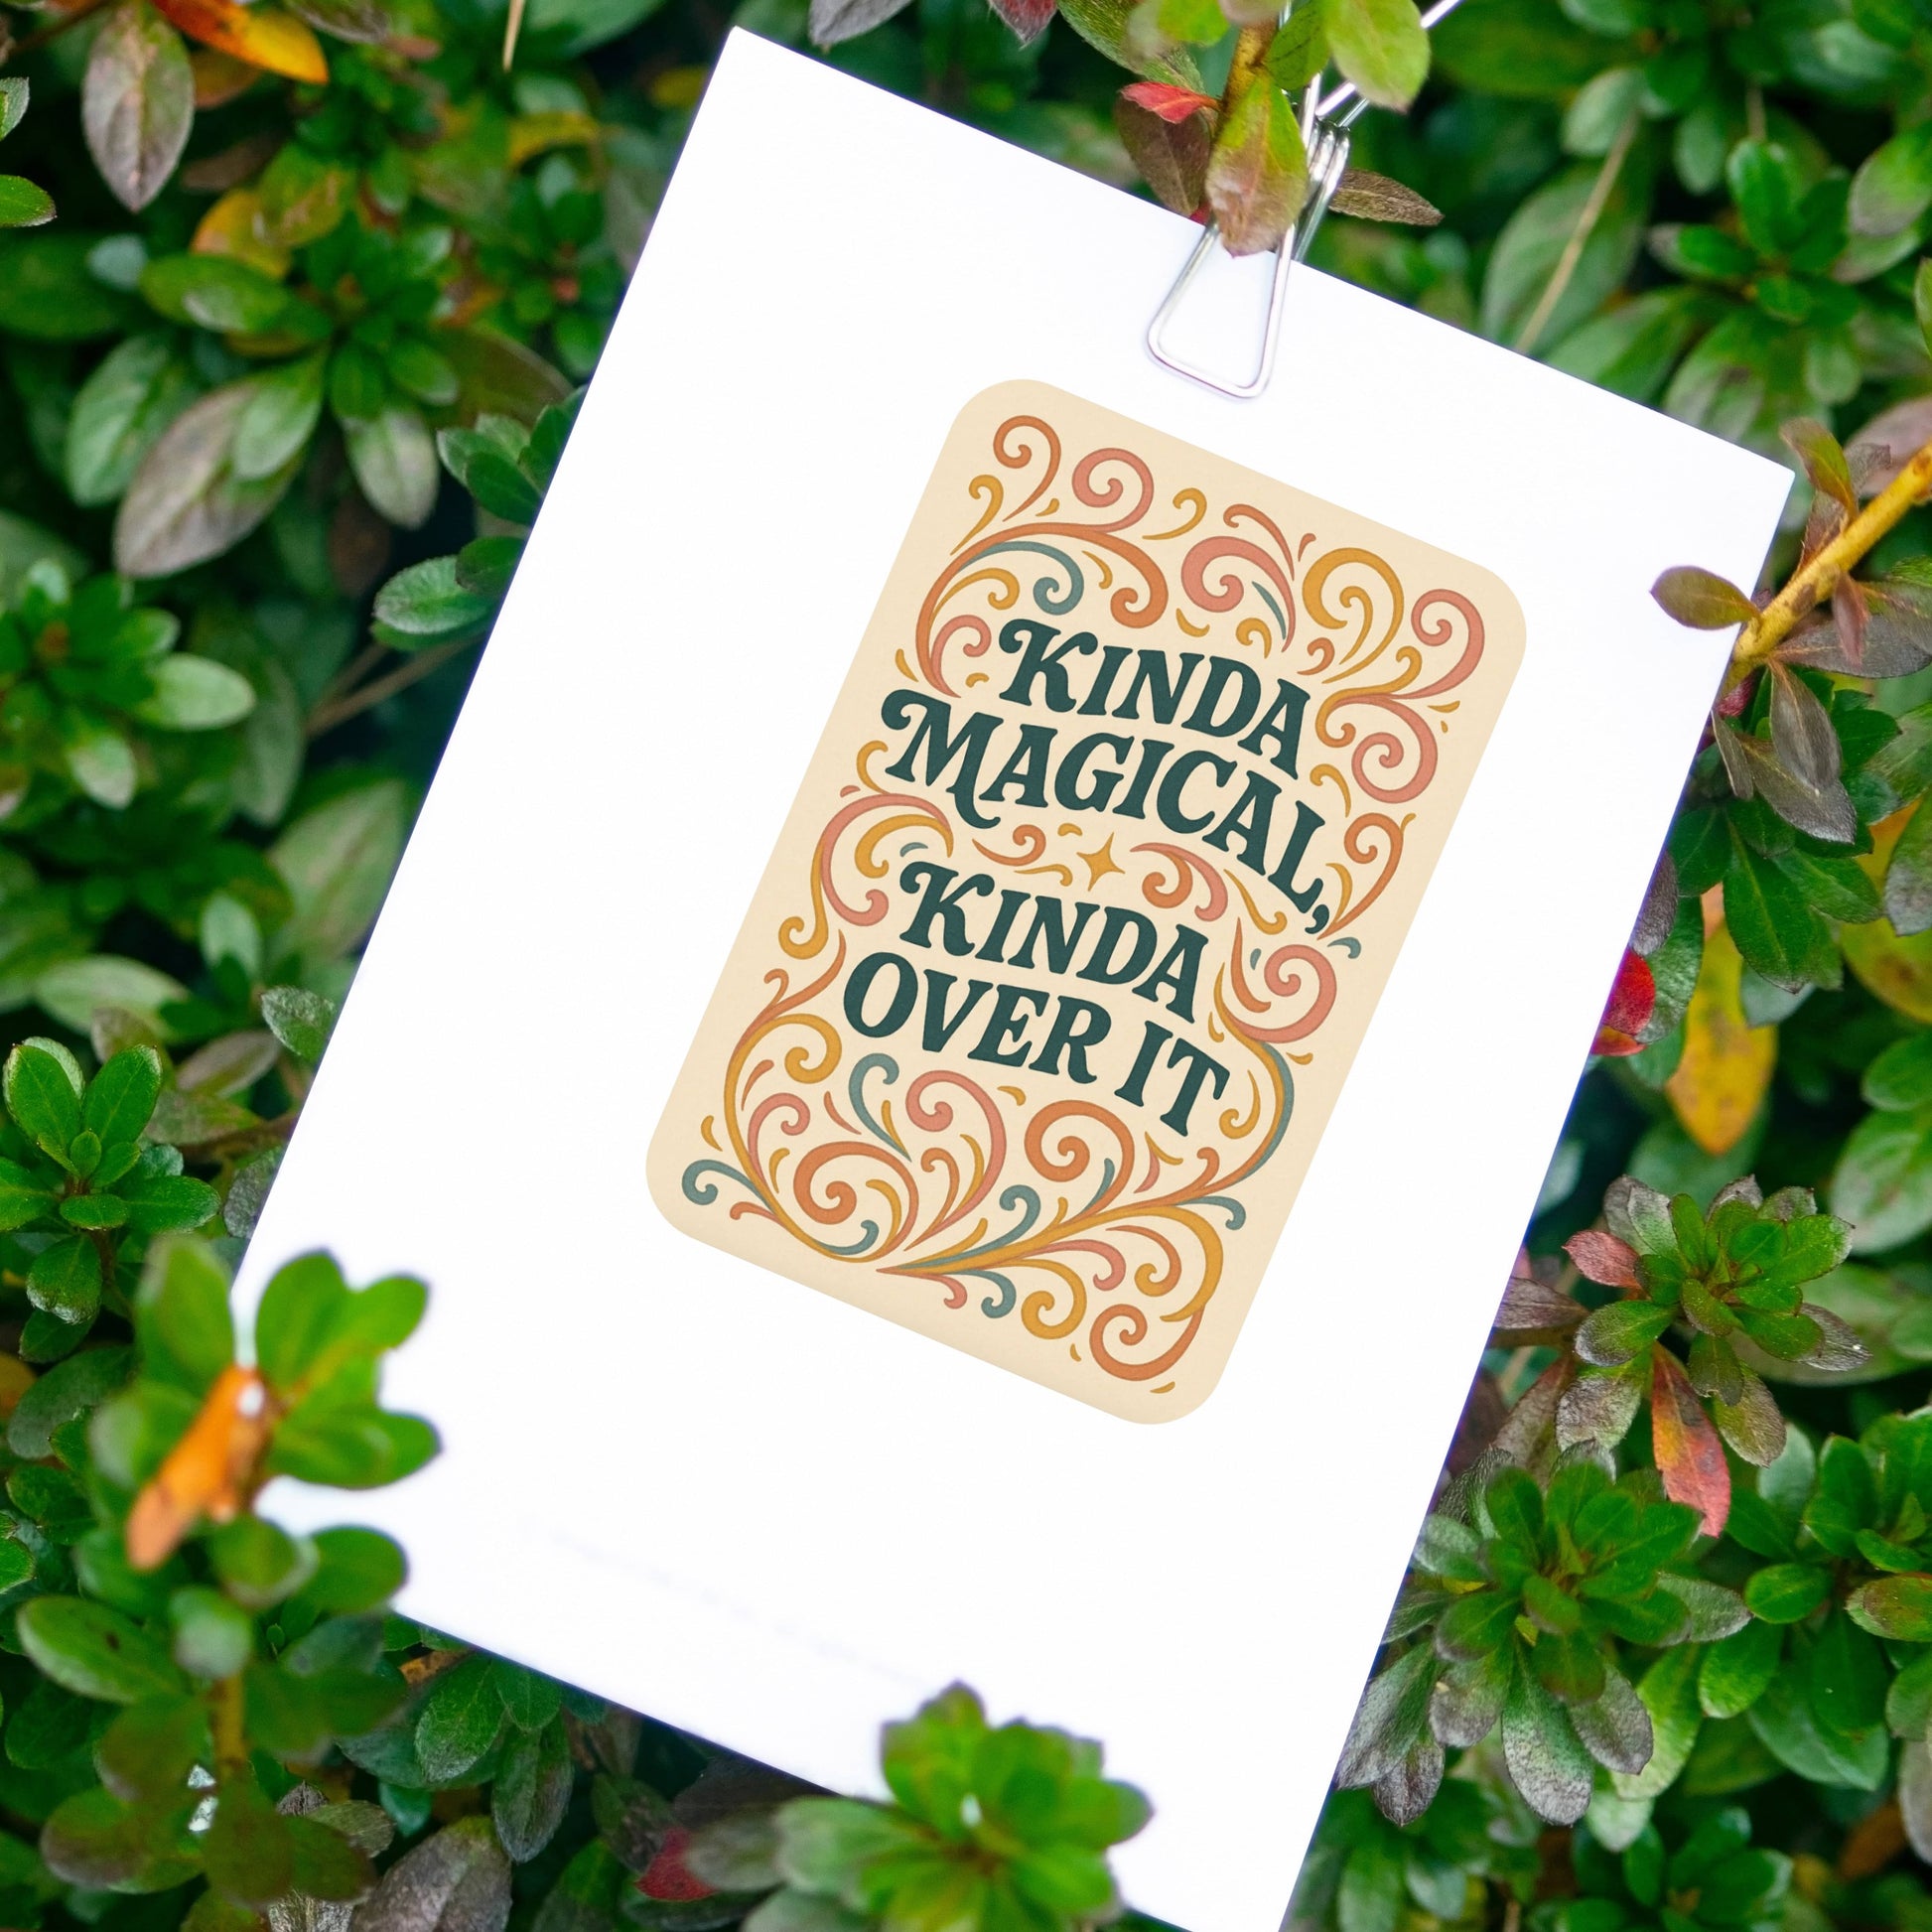 KINDA
MAGICAL,
KINDA
OVER IT